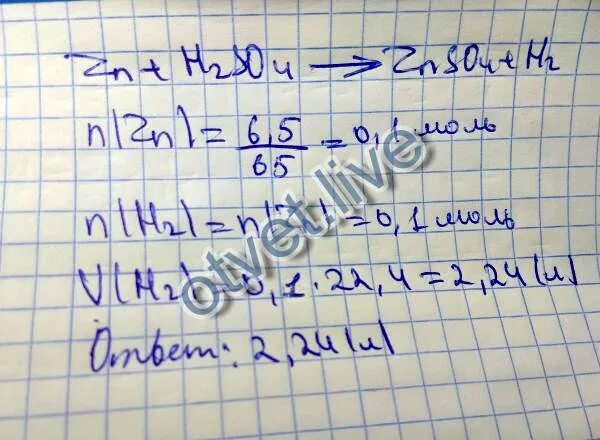 Zn + H2SO4 → ZnSO4 + H2
n(Zn) = 6,5/65 = 0,1 моль
n(H2) = n(Zn) = 0,1 моль
V(H2) = 0,1 · 22,4 = 2,24 (л)
Ответ: 2,24 (л)
otvet.live